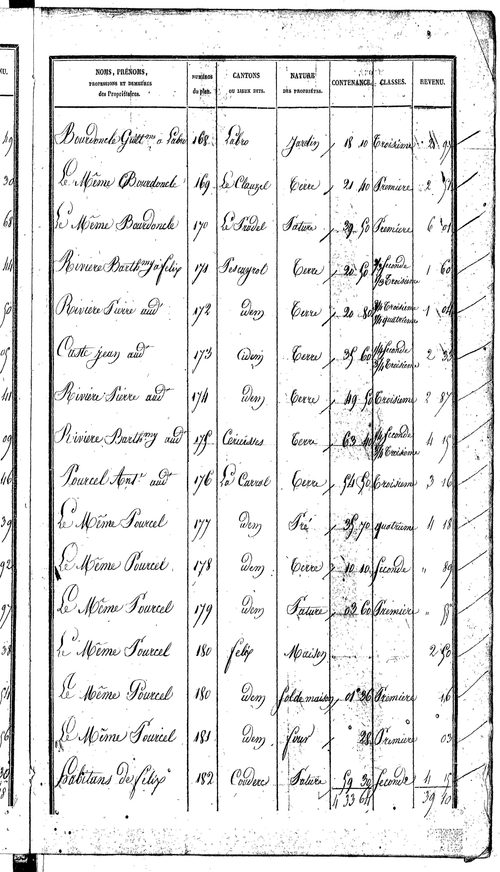 NOMS, PRÉNOMS, PROFESSIONS ET DEMEURES des Propriétaires. NUMÉROS du plan. CANTONS OU LIEUX DITS. NATURE DES PROPRIÉTÉS. CONTENANCE. CLASSES. REVENU.
Bourdoncle Guill.me a Labro 168 Labro Jardin 18 10 Troisieme 2
Le Même Bourdoncle 169 Le Clauzel Terre 21 40 Premiere 2
Le Même Bourdoncle 170 Le Pradel Pature 29 50 Premiere 6 01
Riviere Barth.my a felix 171 Pescayrol Terre 20 50 2/3 seconde 1/3 Troisieme 1 60
Riviere Pierre aud.t 172 idem Terre 20 80 Troisieme quatrieme 1 04
Caste jean aud.t 173 idem Terre 35 60 1/4 seconde 3/4 Troisieme 2 33
Riviere Pierre aud.t 174 idem Terre 49 50 Troisieme 2 87
Riviere Barth.my aud.t 175 Terre 63 40 1/4 seconde 3/4 Troisieme 4 15
Pourcel Ant.e aud.t 176 La Carral Terre 54 50 Troisieme 3 16
Le Même Pourcel 177 idem Pré 35 70 quatrieme 4 18
Le Même Pourcel 178 idem Terre 10 10 seconde " 89
Le Même Pourcel 179 idem Pature 02 60 Premiere "
Le Même Pourcel 180 felix Maison 2 50
Le Même Pourcel 180 idem sol de maison 01 36 Premiere 16
Le Même Pourcel 181 idem four 28 Premiere 03
habitans de felix 182 Couderc Pature 59 30 seconde 4 15
4 33 64 39 10